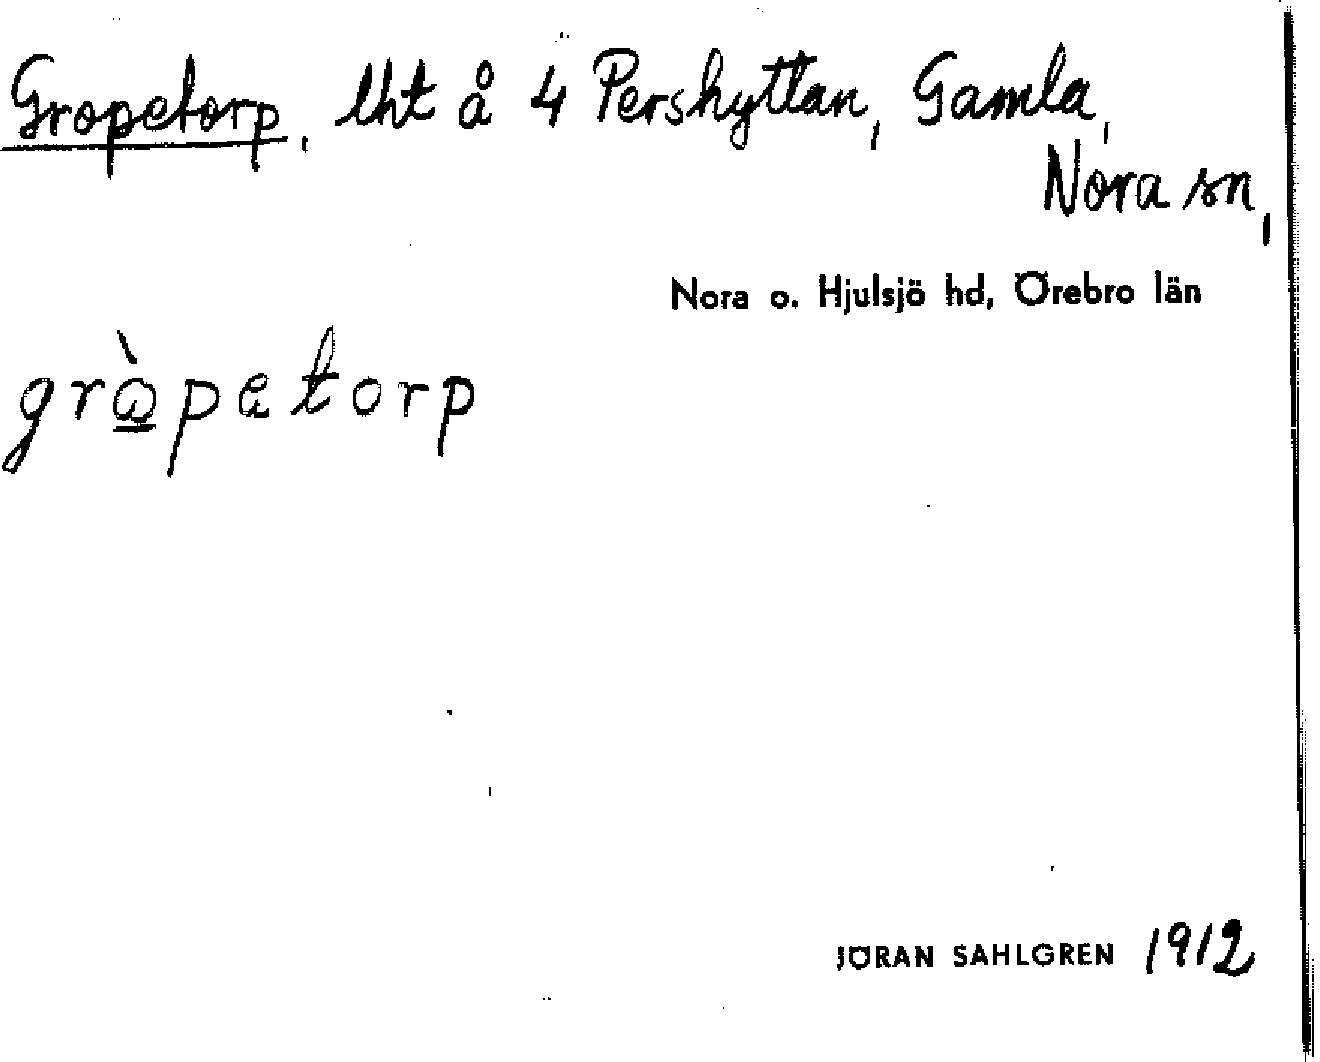 Gropetorp, lht å 4 Pershyttan, Gamla,
Nora sn,
Nora o. Hjulsjö hd, Örebro län
grò̲petorp
JÖRAN SAHLGREN 1912